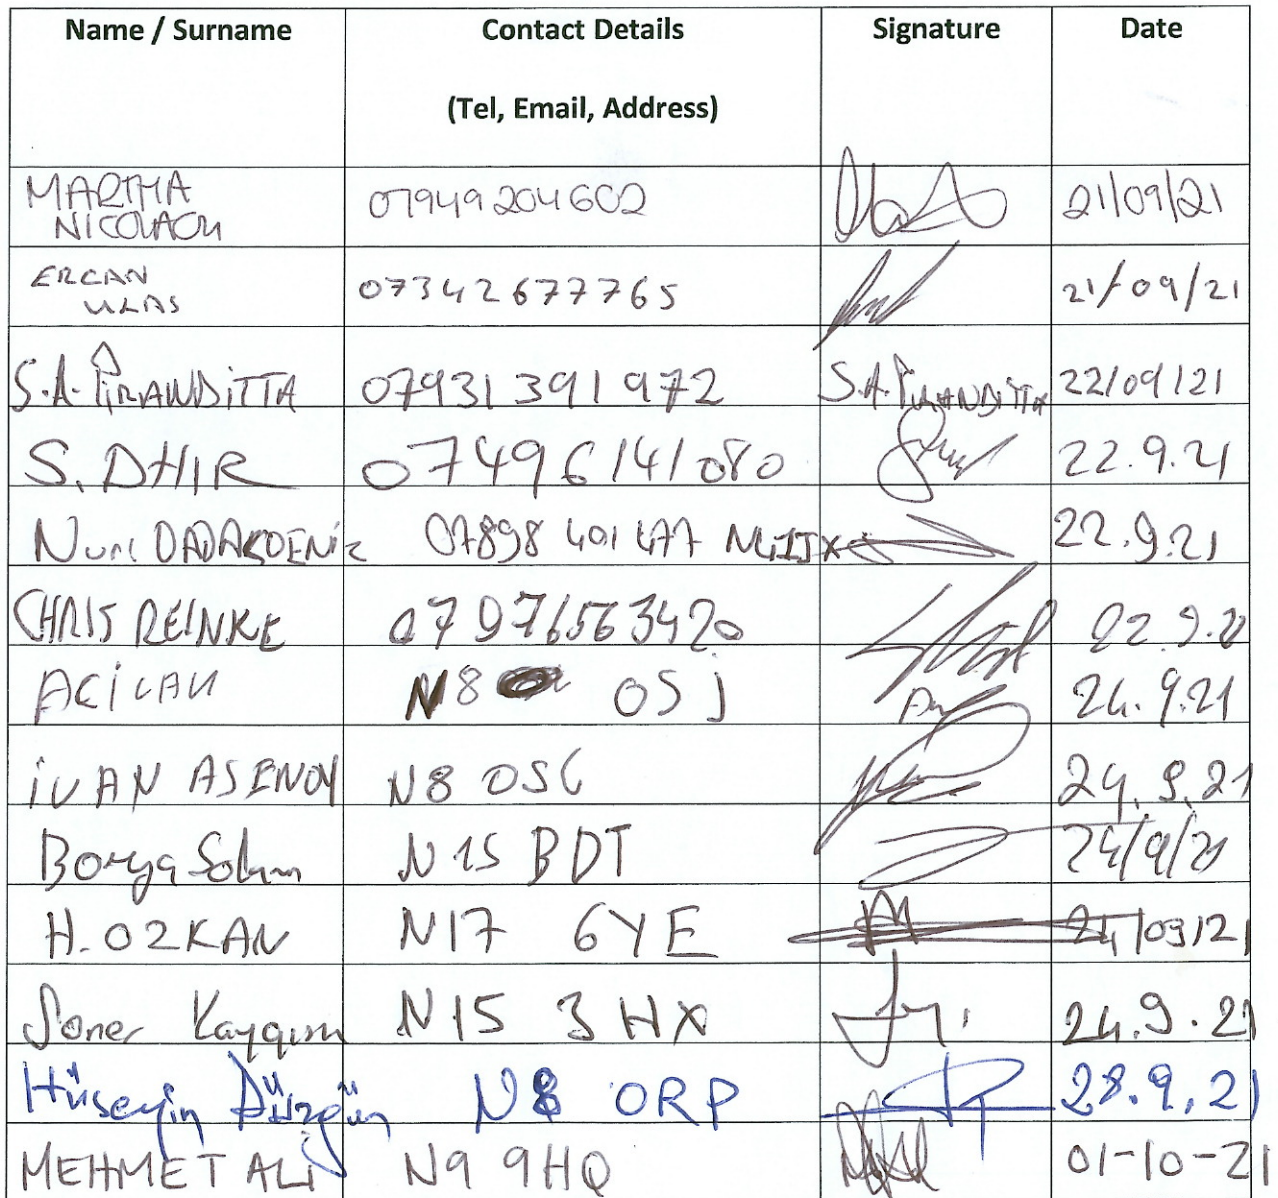 Name / Surname Contact Details Signature Date
(Tel, Email, Address)
MARTHA
NICOLAOU 07949204602 21/09/21
ERCAN
ULAS 07342677765 21/09/21
S.A. PIRANDiTTA 07931 391 972 S.A. PIRANDiTTA 22/09/21
S. DHIR 07496141080 22.9.21
Nuri DADAKDENiz 07898 401 477 22.9.21
CHRIS REINKE 07976563420 22.9.2
ACiLAN N8 0SJ 24.9.21
iVAN ASENOV N8 0SG 24.9.21
Borga N15 BDT 24/9/21
H. OZKAN N17 6YE 24/09/21
Soner N15 3HX 24.9.21
Hüseyin Düzgün N8 0RP 28.9.21
MEHMET ALi N9 9HQ 01-10-21